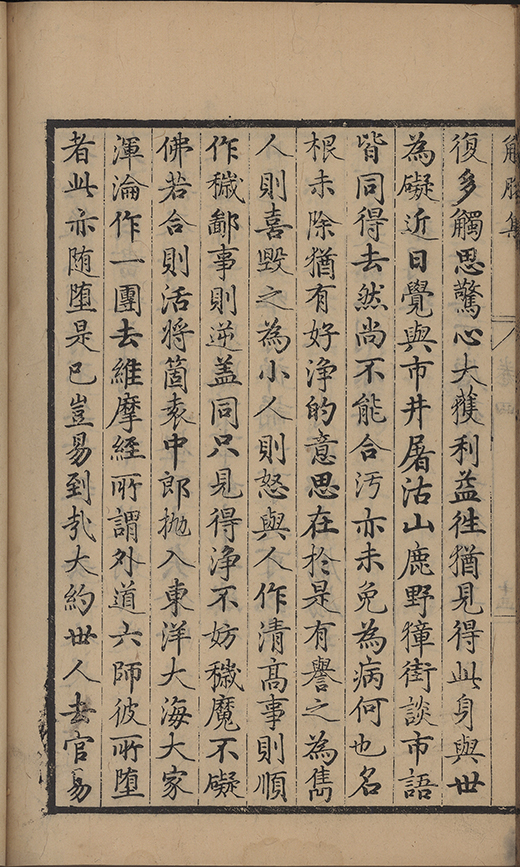 解脫集
復多觸思驚心大獲利益徃猶見得此身與世
為礙近日覺與市井屠沽山鹿野獐街談市語
皆同得去然尚不能合汚亦未免為病何也名
根未除猶有好淨的意思在於是有譽之為雋
人則喜毀之為小人則怒與人作清高事則順
作穢鄙事則逆盖同只見得淨不妨穢魔不礙
佛若合則活將箇袁中郎拋入東洋大海大家
渾淪作一團去維摩經所謂外道六師彼所墮
者此亦随堕是已豈易到㢤大約世人去官易